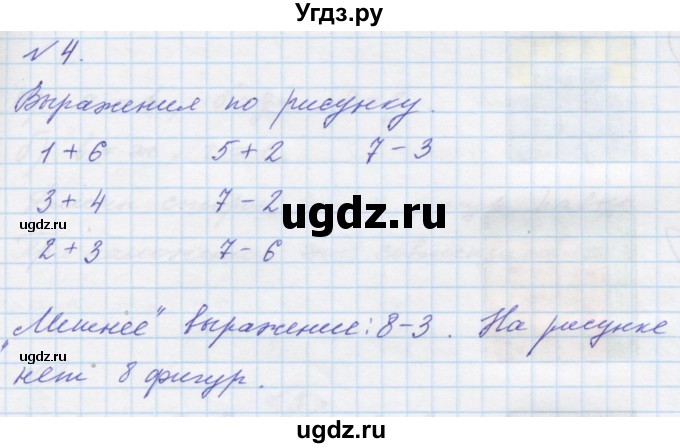 Угдз.ру
№ 4.
Выражения по рисунку.
1 + 6 5 + 2 7 - 3
3 + 4 7 - 2
2 + 3 7 - 6
ugdz.ru
„Лишнее" выражение: 8-3. На рисунке
нет 8 фигур.
ugdz.ru
ugdz.ru
ugdz.ru
ugdz.ru